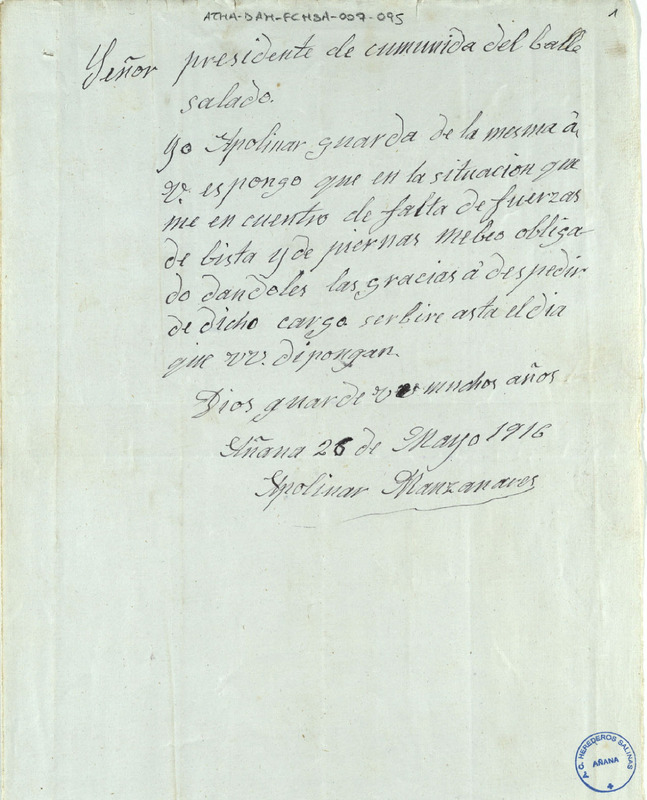 ATHA-DAH-FCMSA-007-095
1
Señor presidente de cumunida del balle
salado.
Yo Apolinar guarda de la mesma á
V. espongo que en la situacion que
me en cuentro de falta de fuerzas
de bista y de piernas mebeo obliga
do dandoles las gracias á despedir
de dicho cargo serbire asta el dia
que VV. dipongan.
Dios guarde VV muchos años
Añana 26 de Mayo 1916
Apolinar Manzanares
C. HEREDEROS SALINAS
AÑANA